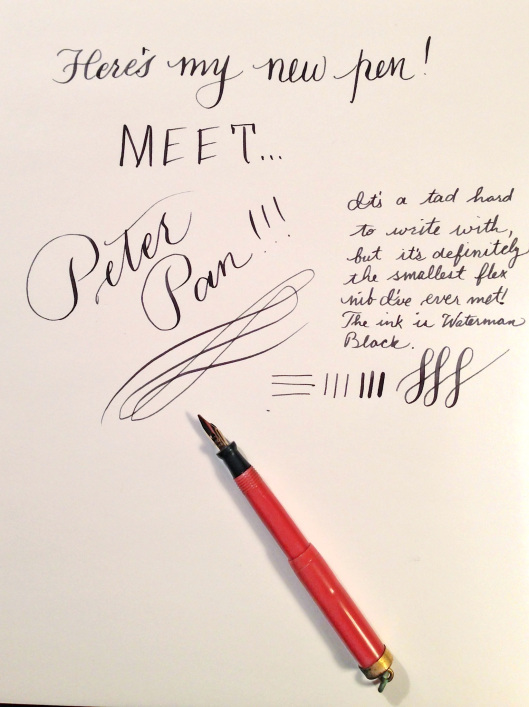 Here's my new pen!
MEET...
Peter
Pan!!!
It's a tad hard
to write with,
but it's definitely
the smallest flex
nib I've ever met!
The ink is Waterman
Black.